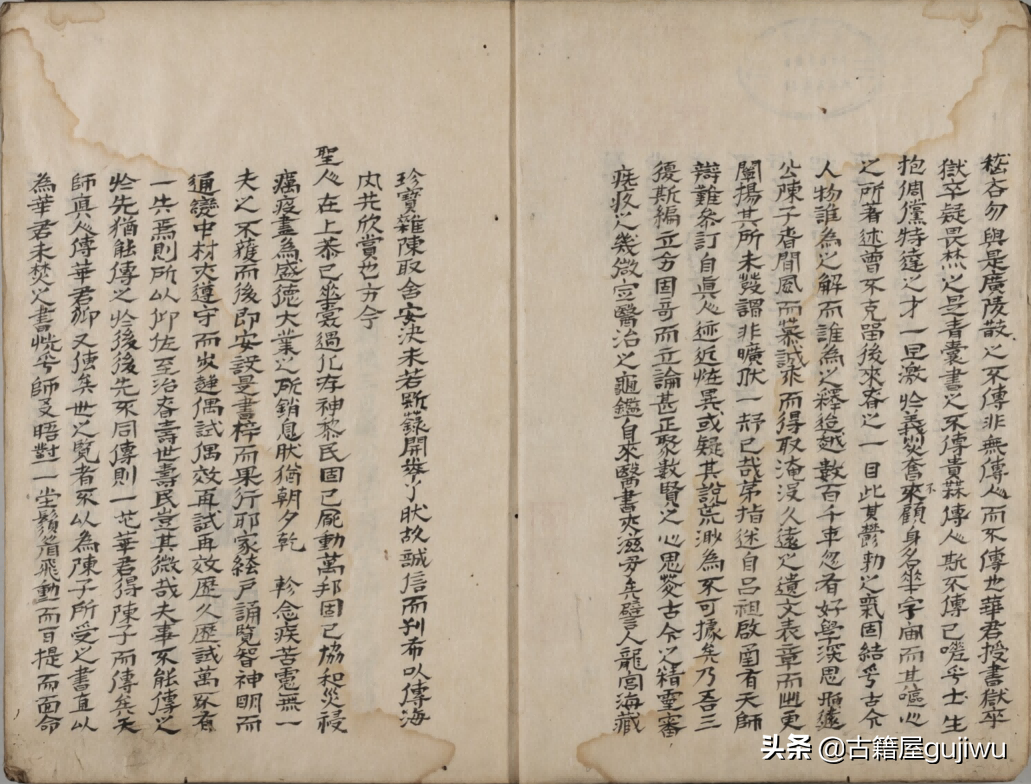 嵇吝勿與是廣陵散之不傳非無傳人而不傳也華君授書獄卒
獄卒疑畏焚之是青囊書之不傳貴無傳人斯不傳已嗟乎士生
抱倜儻特達之才一旦激於義憤奮不顧身名垂宇宙而其嘔心
之所著述曾不克留後來者之一目此其鬱勃之氣固結乎古今
人物誰為之解而誰為之釋迨越數百千年忽有好學深思遐遠
公陳子者聞風而慕誠求而得取淹沒久遠之遺文表章而幽更
闡揚其所未發謂非曠世一好已哉第指迷自呂祖啟函有天師
辯難參訂自真人迹近恠異或疑其說荒渺為不可據矣乃吾三
復斯編立方固奇而立論甚正聚數賢之心思發古今之精靈審
疾疢之幾微定醫治之龜鑑自來醫書夾滋多矣譬人龍宮海藏
珍寶雜陳取舍安決未若斯籙開卷了狀故誠信而刊布以傳海
內共欣賞也方今
聖人在上恭己垂裳過化存神黎民固已風動萬邦固已協和災祲
癘疫盡為盛德大業之所銷息狀猶朝夕乾 軫念疾苦慮無一
夫之不獲而後即安設是書梓而果行耶家絃戶誦覽智神明而
通變中材亦遵守而
偶試偶效再試再效歷久歷試萬不有
一失焉則所以仰佐至治者壽世壽民豈其微哉夫事不能傳之
於先猶能傳之於後後先不同傳則一也華君得陳子而傳矣天
師真人傳華君抑又傳矣世之覽者不以為陳子所受之書直以
為華君未焚之書恍乎師友晤對一坐鬚眉飛動而耳提而面命
头条 @古籍屋gujiwu